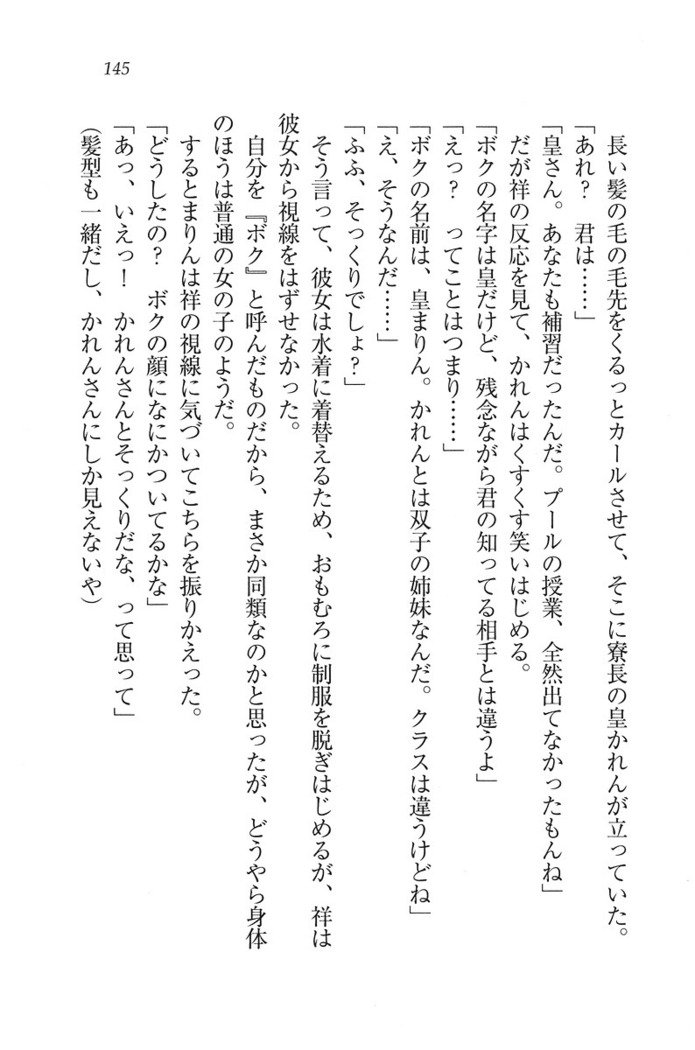 145
長い髪の毛の毛先をくるっとカールさせて、そこに寮長の皇かれんが立っていた。
「あれ？　君は……」
「皇さん。あなたも補習だったんだ。プールの授業、全然出てなかったもんね」
だが祥の反応を見て、かれんはくすくす笑いはじめる。
「ボクの名字は皇だけど、残念ながら君の知ってる相手とは違うよ」
「えっ？　ってことはつまり……」
「ボクの名前は、皇まりん。かれんとは双子の姉妹なんだ。クラスは違うけどね」
「え、そうなんだ……」
「ふふ、そっくりでしょ？」
そう言って、彼女は水着に着替えるため、おもむろに制服を脱ぎはじめるが、祥は
彼女から視線をはずせなかった。
自分を『ボク』と呼んだものだから、まさか同類なのかと思ったが、どうやら身体
のほうは普通の女の子のようだ。
するとまりんは祥の視線に気づいてこちらを振りかえった。
「どうしたの？　ボクの顔になにかついてるかな」
「あっ、いえっ！　かれんさんとそっくりだな、って思って」
（髪型も一緒だし、かれんさんにしか見えないや）